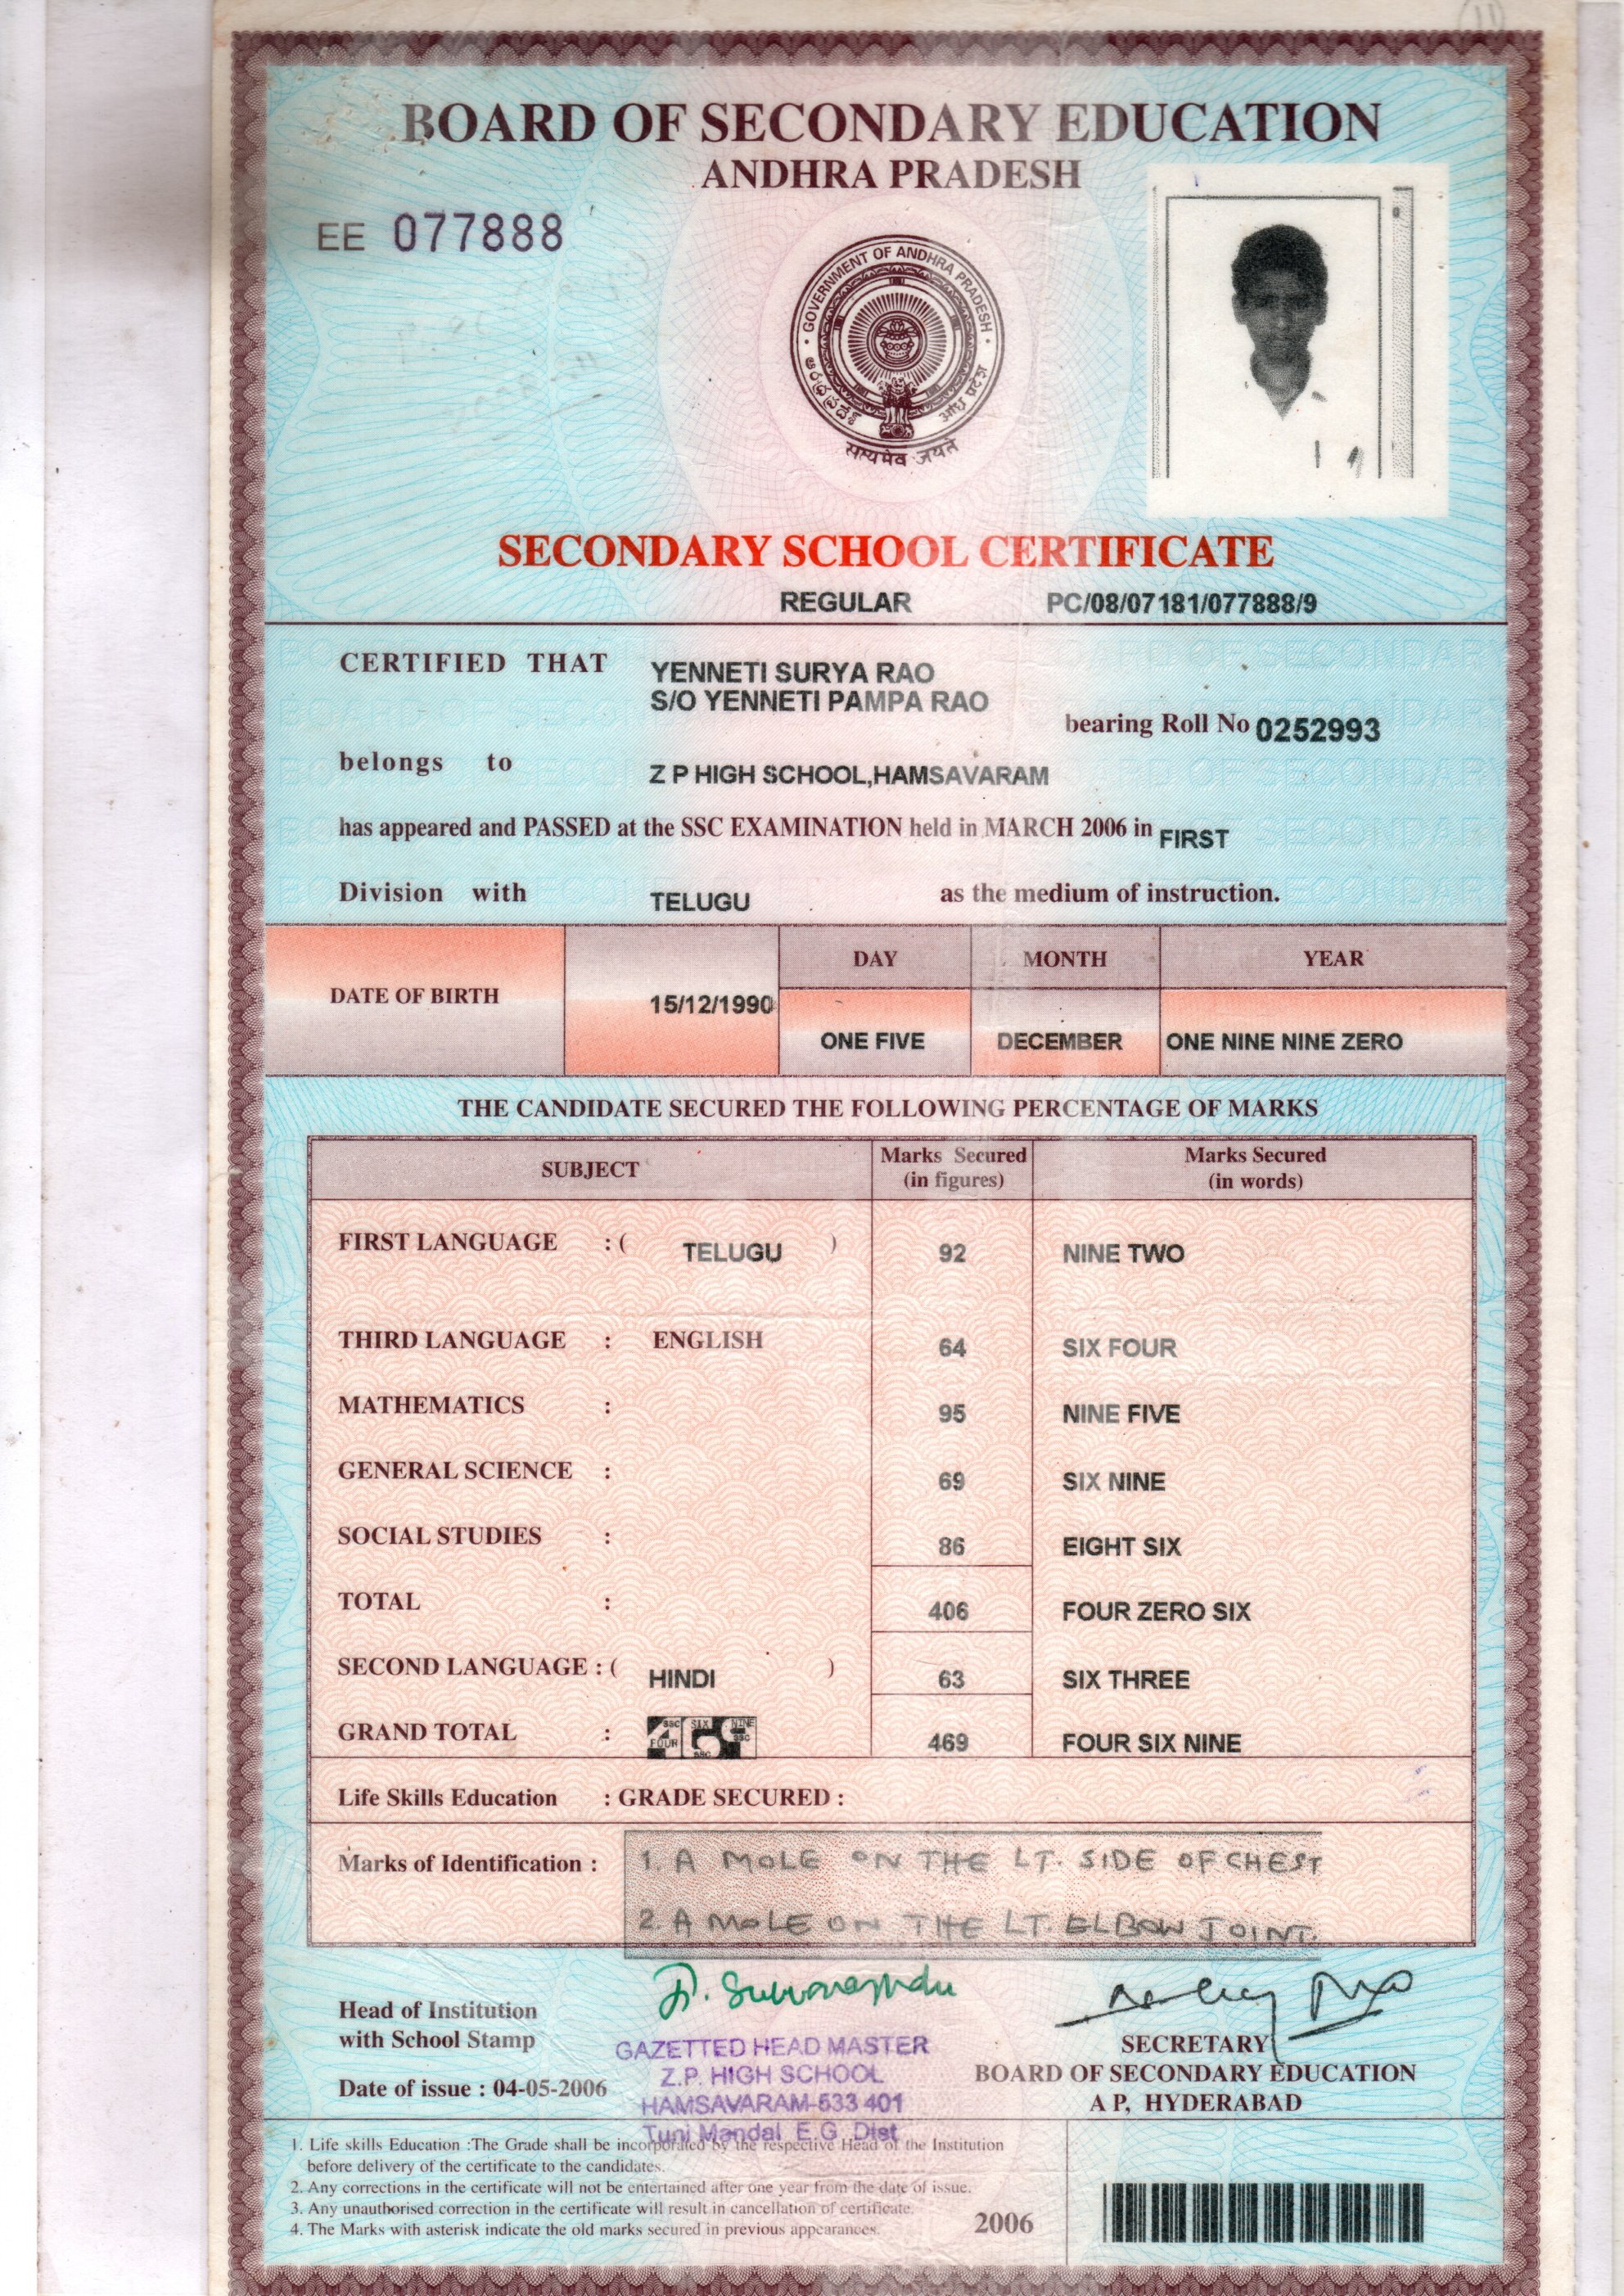 11
BOARD OF SECONDARY EDUCATION
ANDHRA PRADESH
EE 077888
GOVERNMENT OF ANDHRA PRADESH
ఆంధ్రప్రదేశ్
आंध्र प्रदेश
सत्यमेव जयते
SECONDARY SCHOOL CERTIFICATE
REGULAR PC/08/07181/077888/9
CERTIFIED THAT YENNETI SURYA RAO
S/O YENNETI PAMPA RAO
bearing Roll No 0252993
belongs to Z P HIGH SCHOOL,HAMSAVARAM
has appeared and PASSED at the SSC EXAMINATION held in MARCH 2006 in FIRST
Division with TELUGU as the medium of instruction.
DAY MONTH YEAR
DATE OF BIRTH 15/12/1990
ONE FIVE DECEMBER ONE NINE NINE ZERO
THE CANDIDATE SECURED THE FOLLOWING PERCENTAGE OF MARKS
SUBJECT Marks Secured (in figures) Marks Secured (in words)
FIRST LANGUAGE : ( TELUGU ) 92 NINE TWO
THIRD LANGUAGE : ENGLISH 64 SIX FOUR
MATHEMATICS : 95 NINE FIVE
GENERAL SCIENCE : 69 SIX NINE
SOCIAL STUDIES : 86 EIGHT SIX
TOTAL : 406 FOUR ZERO SIX
SECOND LANGUAGE : ( HINDI ) 63 SIX THREE
GRAND TOTAL : 469 FOUR SIX NINE
Life Skills Education : GRADE SECURED :
Marks of Identification : 1. A MOLE ON THE LT. SIDE OF CHEST
2. A MOLE ON THE LT. ELBOW JOINT.
Head of Institution
with School Stamp
Date of issue : 04-05-2006
GAZETTED HEAD MASTER
Z.P. HIGH SCHOOL
HAMSAVARAM-533 401
Tuni Mandal, E.G. Dist
SECRETARY
BOARD OF SECONDARY EDUCATION
A P, HYDERABAD
1. Life skills Education :The Grade shall be incorporated by the respective Head of the Institution
before delivery of the certificate to the candidates.
2. Any corrections in the certificate will not be entertained after one year from the date of issue.
3. Any unauthorised correction in the certificate will result in cancellation of certificate.
4. The Marks with asterisk indicate the old marks secured in previous appearances.
2006